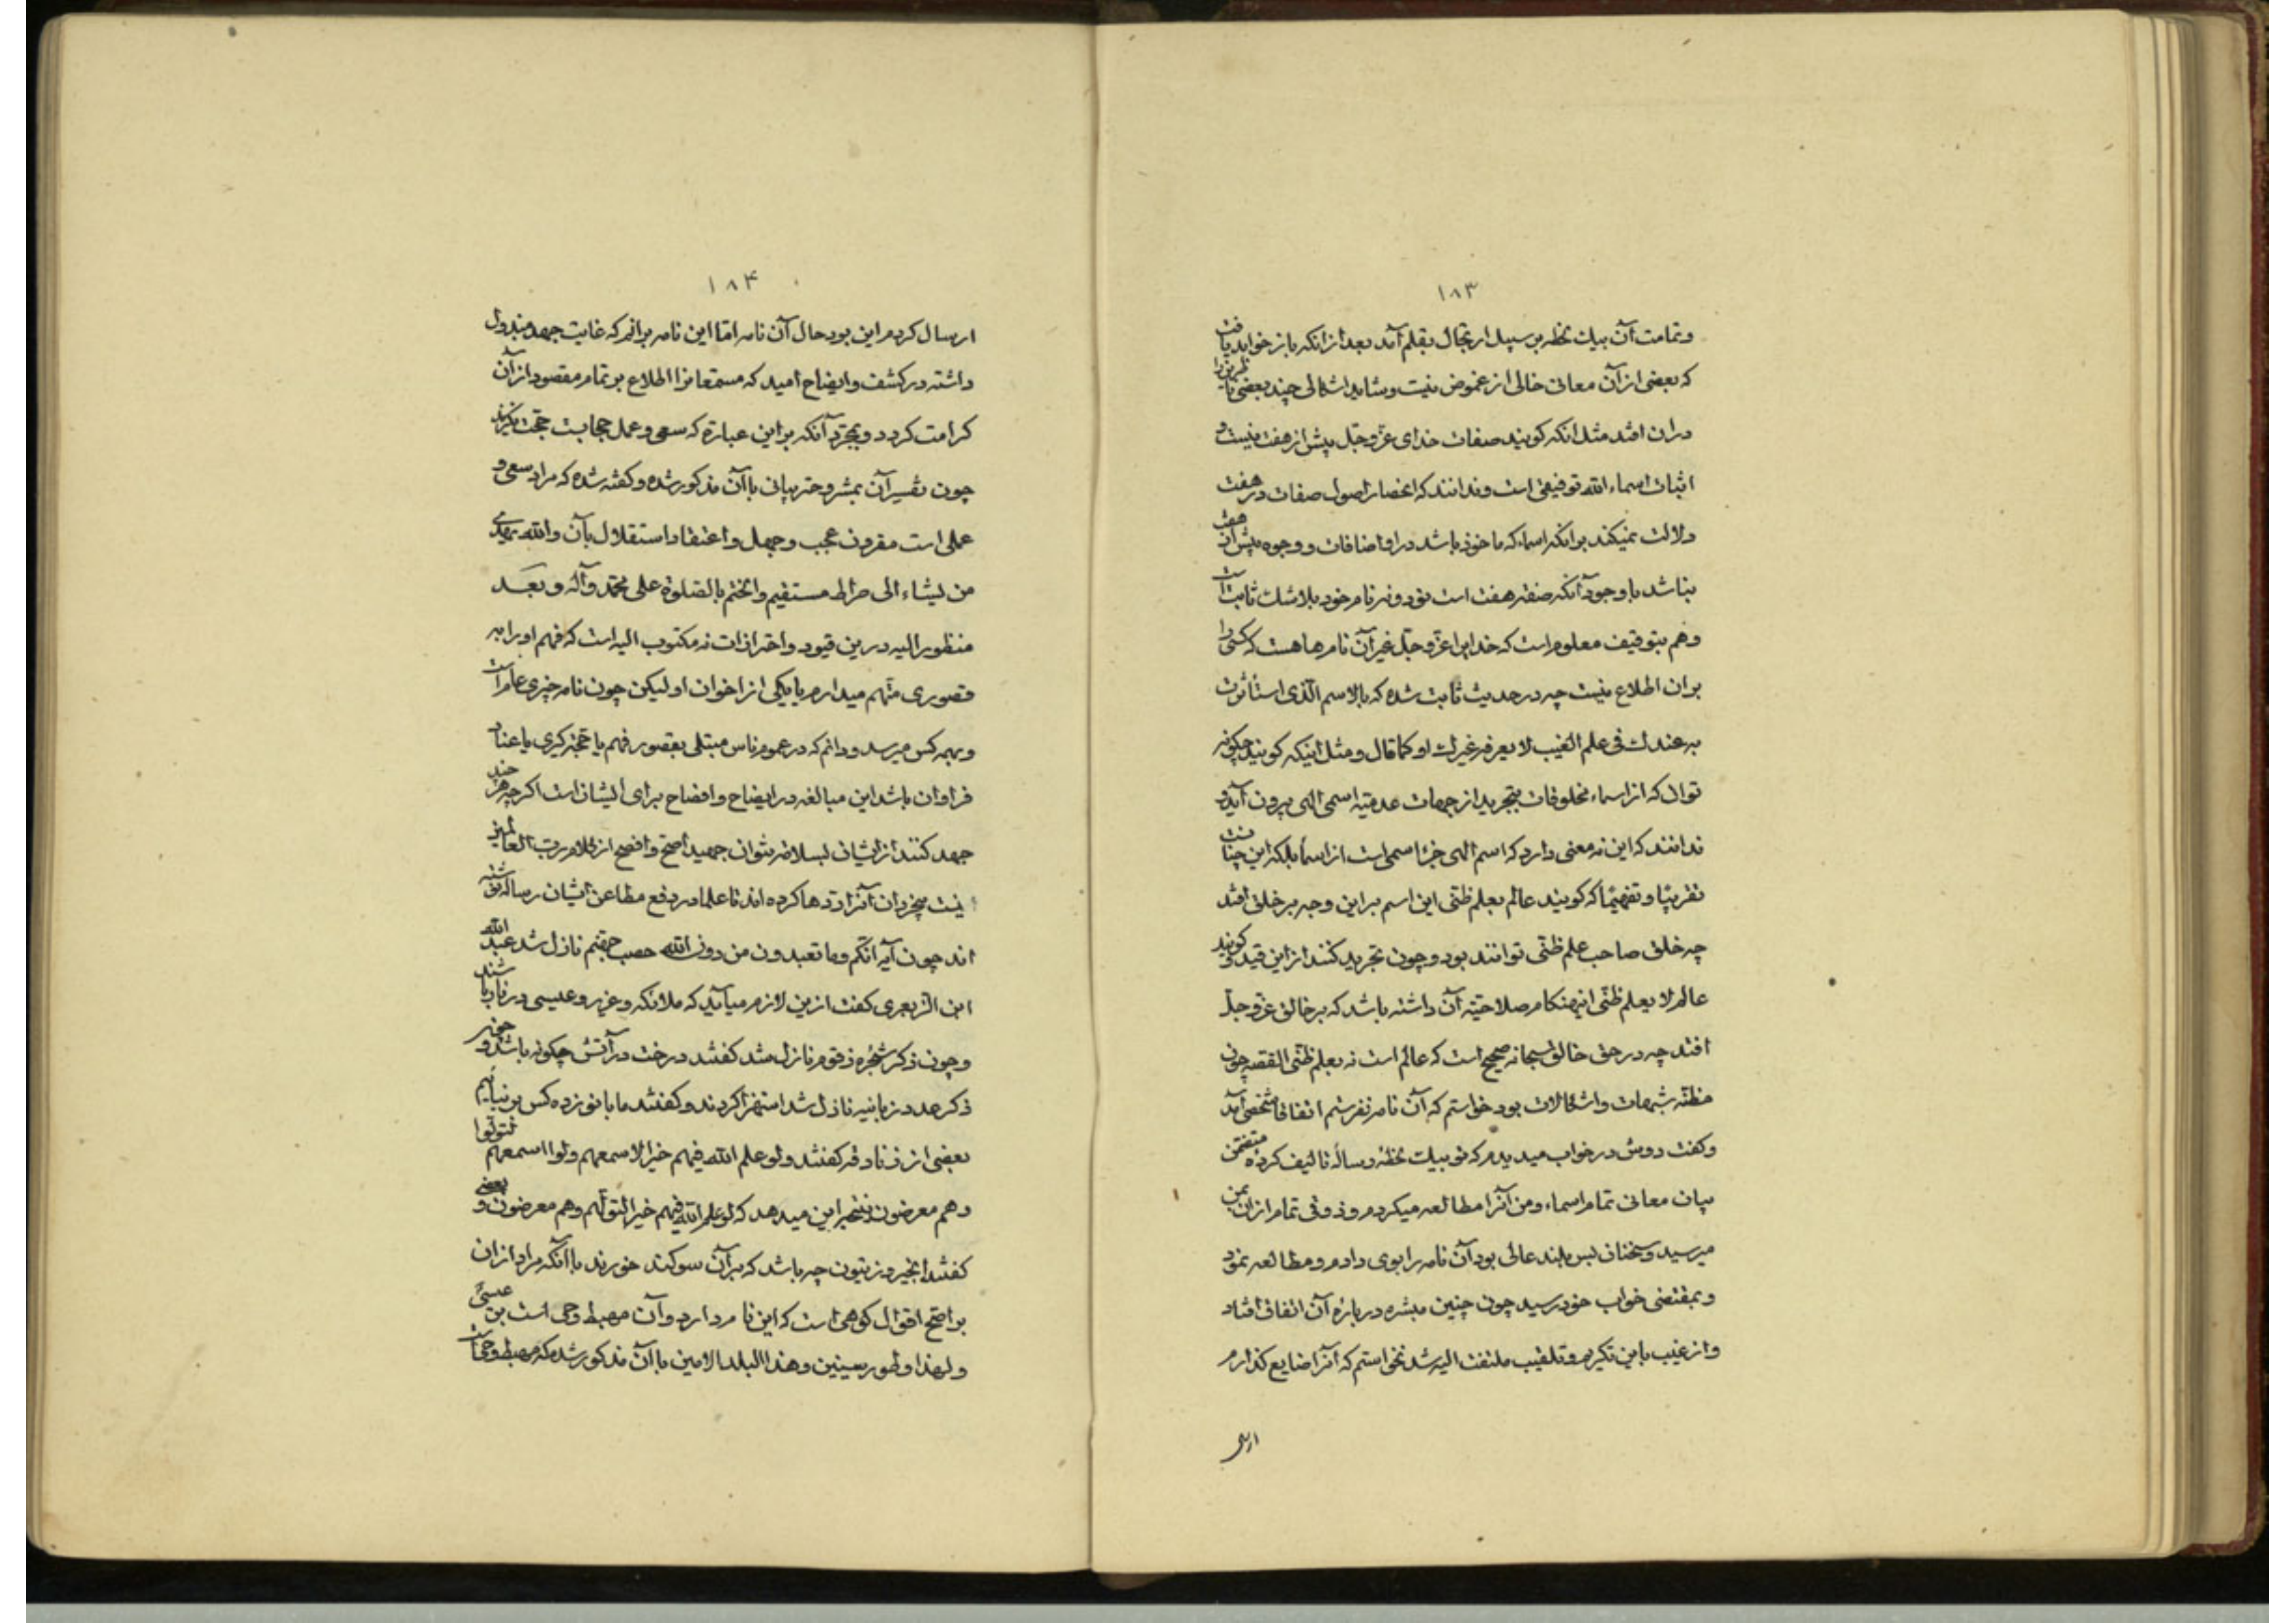 ۱۸۳
وتمامت آن بیك لحظه بر سبیل ارتجال بقلم آمد بعد از انکه باز خواند یافت
که بعضی از آن معانی خالی از غموض نیست وشاید اشکالی چند بعضی ناظرین را
دران افتد مثل انکه کویند صفات خدای عزّ وجلّ بیش از هفت نیست و
اثبات اسماء الله توقیفی است وندانند که انحصار اصول صفات در هفت
دلالت نمیکند بر انکه اسماء که ماخوذ باشد در او اضافات و وجوه بیش از هفت
نباشد با وجود آنکه صفته هفت است نود ونه نام خود بلا شك ثابت است
وهم بتوقیف معلوم است که خدایرا عزّ وجلّ غیر آن نامها هست که کسی را
بران اطلاع نیست چه در حدیث ثابت شده که بالاسم الّذی استأثرت
به عندك فی علم الغیب لا یعرفه غیرك او کما قال ومثل اینکه کویند چکونه
توان که از اسماء مخلوقات بتجرید از جهات عدمیّه اسمی الهی بیرون آید و
ندانند که این نه معنی دارد که اسم الهی جزء اسمی است از اسما بلکه این چنانست
تقریبًا وتفهیمًا که کویند عالم بعلم ظنّی این اسم براین وجه بر خلق افتد
چه خلق صاحب علم ظنّی توانند بود وچون تجرید کنند از این قید و کویند
عالم لا بعلم ظنّی اینهنکام صلاحیّة آن داشته باشد که بر خالق عزّ وجلّ
افتد چه در حق خالق سبحانه صحیح است که عالم است نه بعلم ظنّی القصه چون
مظنّه شبهات واشکالات بود خواستم که آن نامه نفرستم اتفاقا شخصی آمد
وکفت دوش در خواب میدیدم که تو بیك لحظه رسالۀ تالیف کردۀ متضمّن
بیان معانی تمام اسماء ومن آنرا مطالعه میکردم وذوقی تمام ازان بمن
میرسید وسخنان بس بلند عالی بود آن نامه را بوی دادم ومطالعه نمود
وبمقتضی خواب خود رسید چون چنین مبشره در بارۀ آن اتفاق افتاد
واز غیب باین تکریم وتلقیب ملتفت الیه شد نخواستم که آنرا ضایع کذارم
ارسال
۱۸۴
ارسال کردم این بود حال آن نامه امّا این نامه برانم که غایت جهد مبذول
داشته در کشف وایضاح امید که مستمعانرا اطلاع بر تمام مقصود از آن
کرامت کردد وبمجرّد آنکه براین عبارة که سعی وعمل حجابست حجّت نکیرند
چون تفسیر آن بمشروحتر بیانی با آن مذکور شده وکفته شده که مراد سعی و
عملی است مقرون بعجب وجهل واعتقاد استقلال بآن والله یهدی
من یشاء الی صراط مستقیم وانختم بالصّلوة علی محمّد وآله وبعد
منظور الیه درین قیود واحترازات نه مکتوب الیه است که فهم او را به
قصوری متّهم میدارم یا یکی از اخوان او لیکن چون نامه چیزی عام است
وبهمه کس میرسد ودانم که در عموم ناس مبتلی بقصور فهم یا حجّة کیری یا عناد
فراوان باشد این مبالغه در ایضاح وافضاح برای ایشان است اکر چه هر چند
جهد کنند از ایشان بسلامة نتوان جهید اصحّ وافصح از کلام ربّ العالمین
نیست بیخردان آنرا ردها کرده اند تا علما در دفع مطاعن ایشان رساله نوشته
اند چون آیه انّکم وما تعبدون من دون الله حصب جهنّم نازل شد عبد الله
ابن الزبعری کفت ازین لازم میآید که ملائکه وعزیر وعیسی در نار باشند
وچون ذکر شجرۀ زقوم نازل شد کفتند درخت در آتش چکونه باشد و چون
ذکر عدد زبانیه نازل شد استهزا کردند وکفتند ما با نوزده کس بر نیائیم
بعضی از زنادقه کفتند ولو علم الله فیهم خیرا لاسمعهم ولو اسمعهم لتولّوا
وهم معرضون نتیجه این میدهد که لو علم الله فیهم خیرا لتولّهم وهم معرضون و بعضی
کفتند انجیر وزیتون چه باشد که بر آن سوکند خورند با آنکه مراد از ان
بر اصحّ اقوال کوهی است که این نام دارد وآن مهبط وحی است بر عیسیٰ
ولهذا وطور سینین وهذا البلد الامین با آن مذکور شده که مهبط وحی است